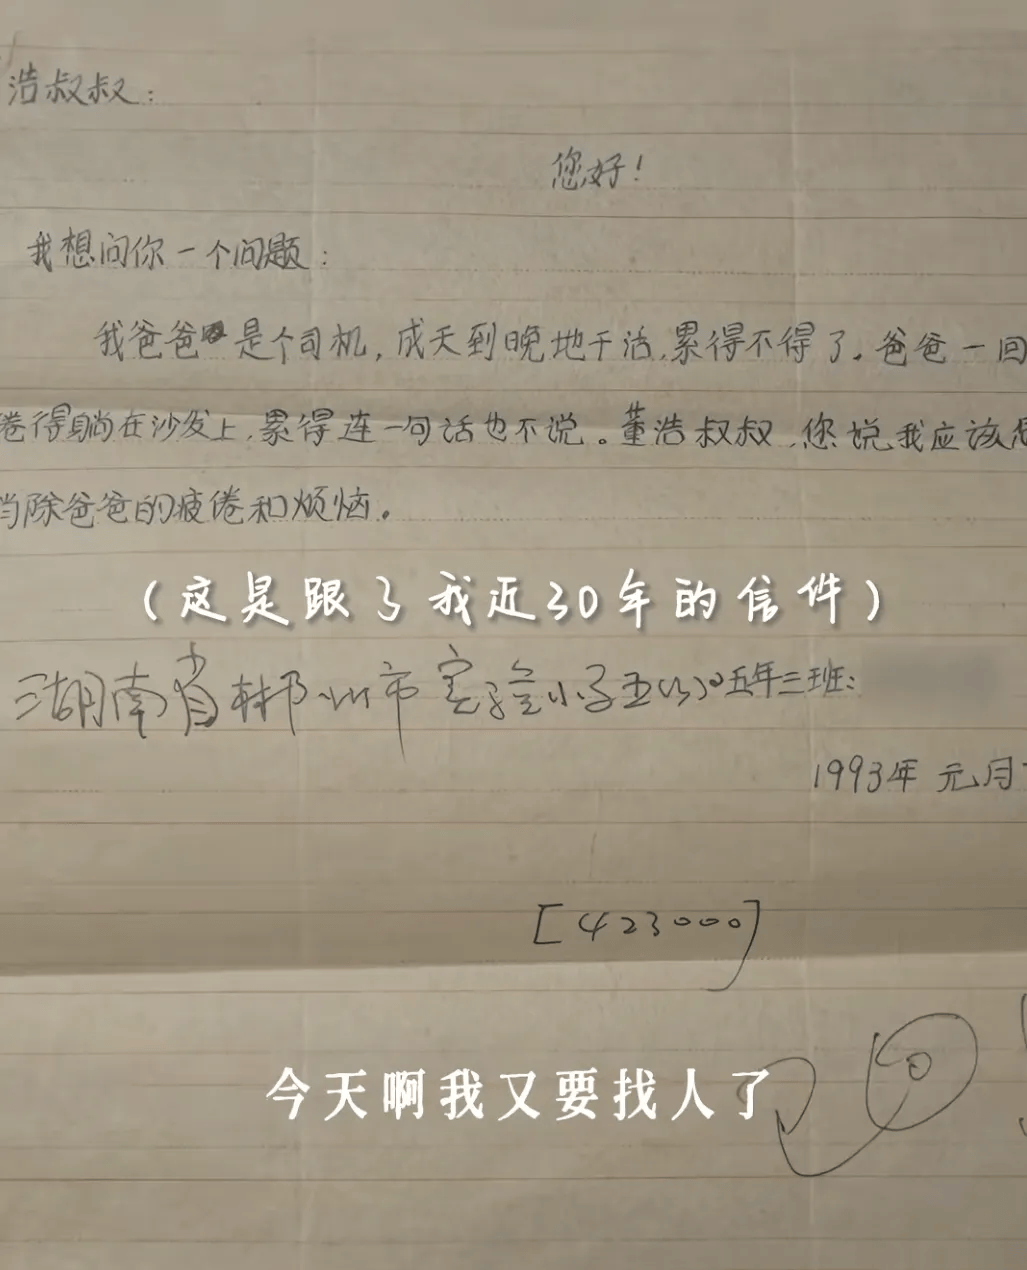 浩叔叔：
您好！
我想问你一个问题：
我爸爸是个司机，成天到晚地干活，累得不得了。爸爸一回
卷得躺在沙发上，累得连一句话也不说。董浩叔叔，您说，我应该怎
除爸爸的疲倦和烦恼。
（这是跟了我近30年的信件）
湖南省郴州市实验小学五(3)
五年三班：
1993年元月
[423000]
今天啊我又要找人了